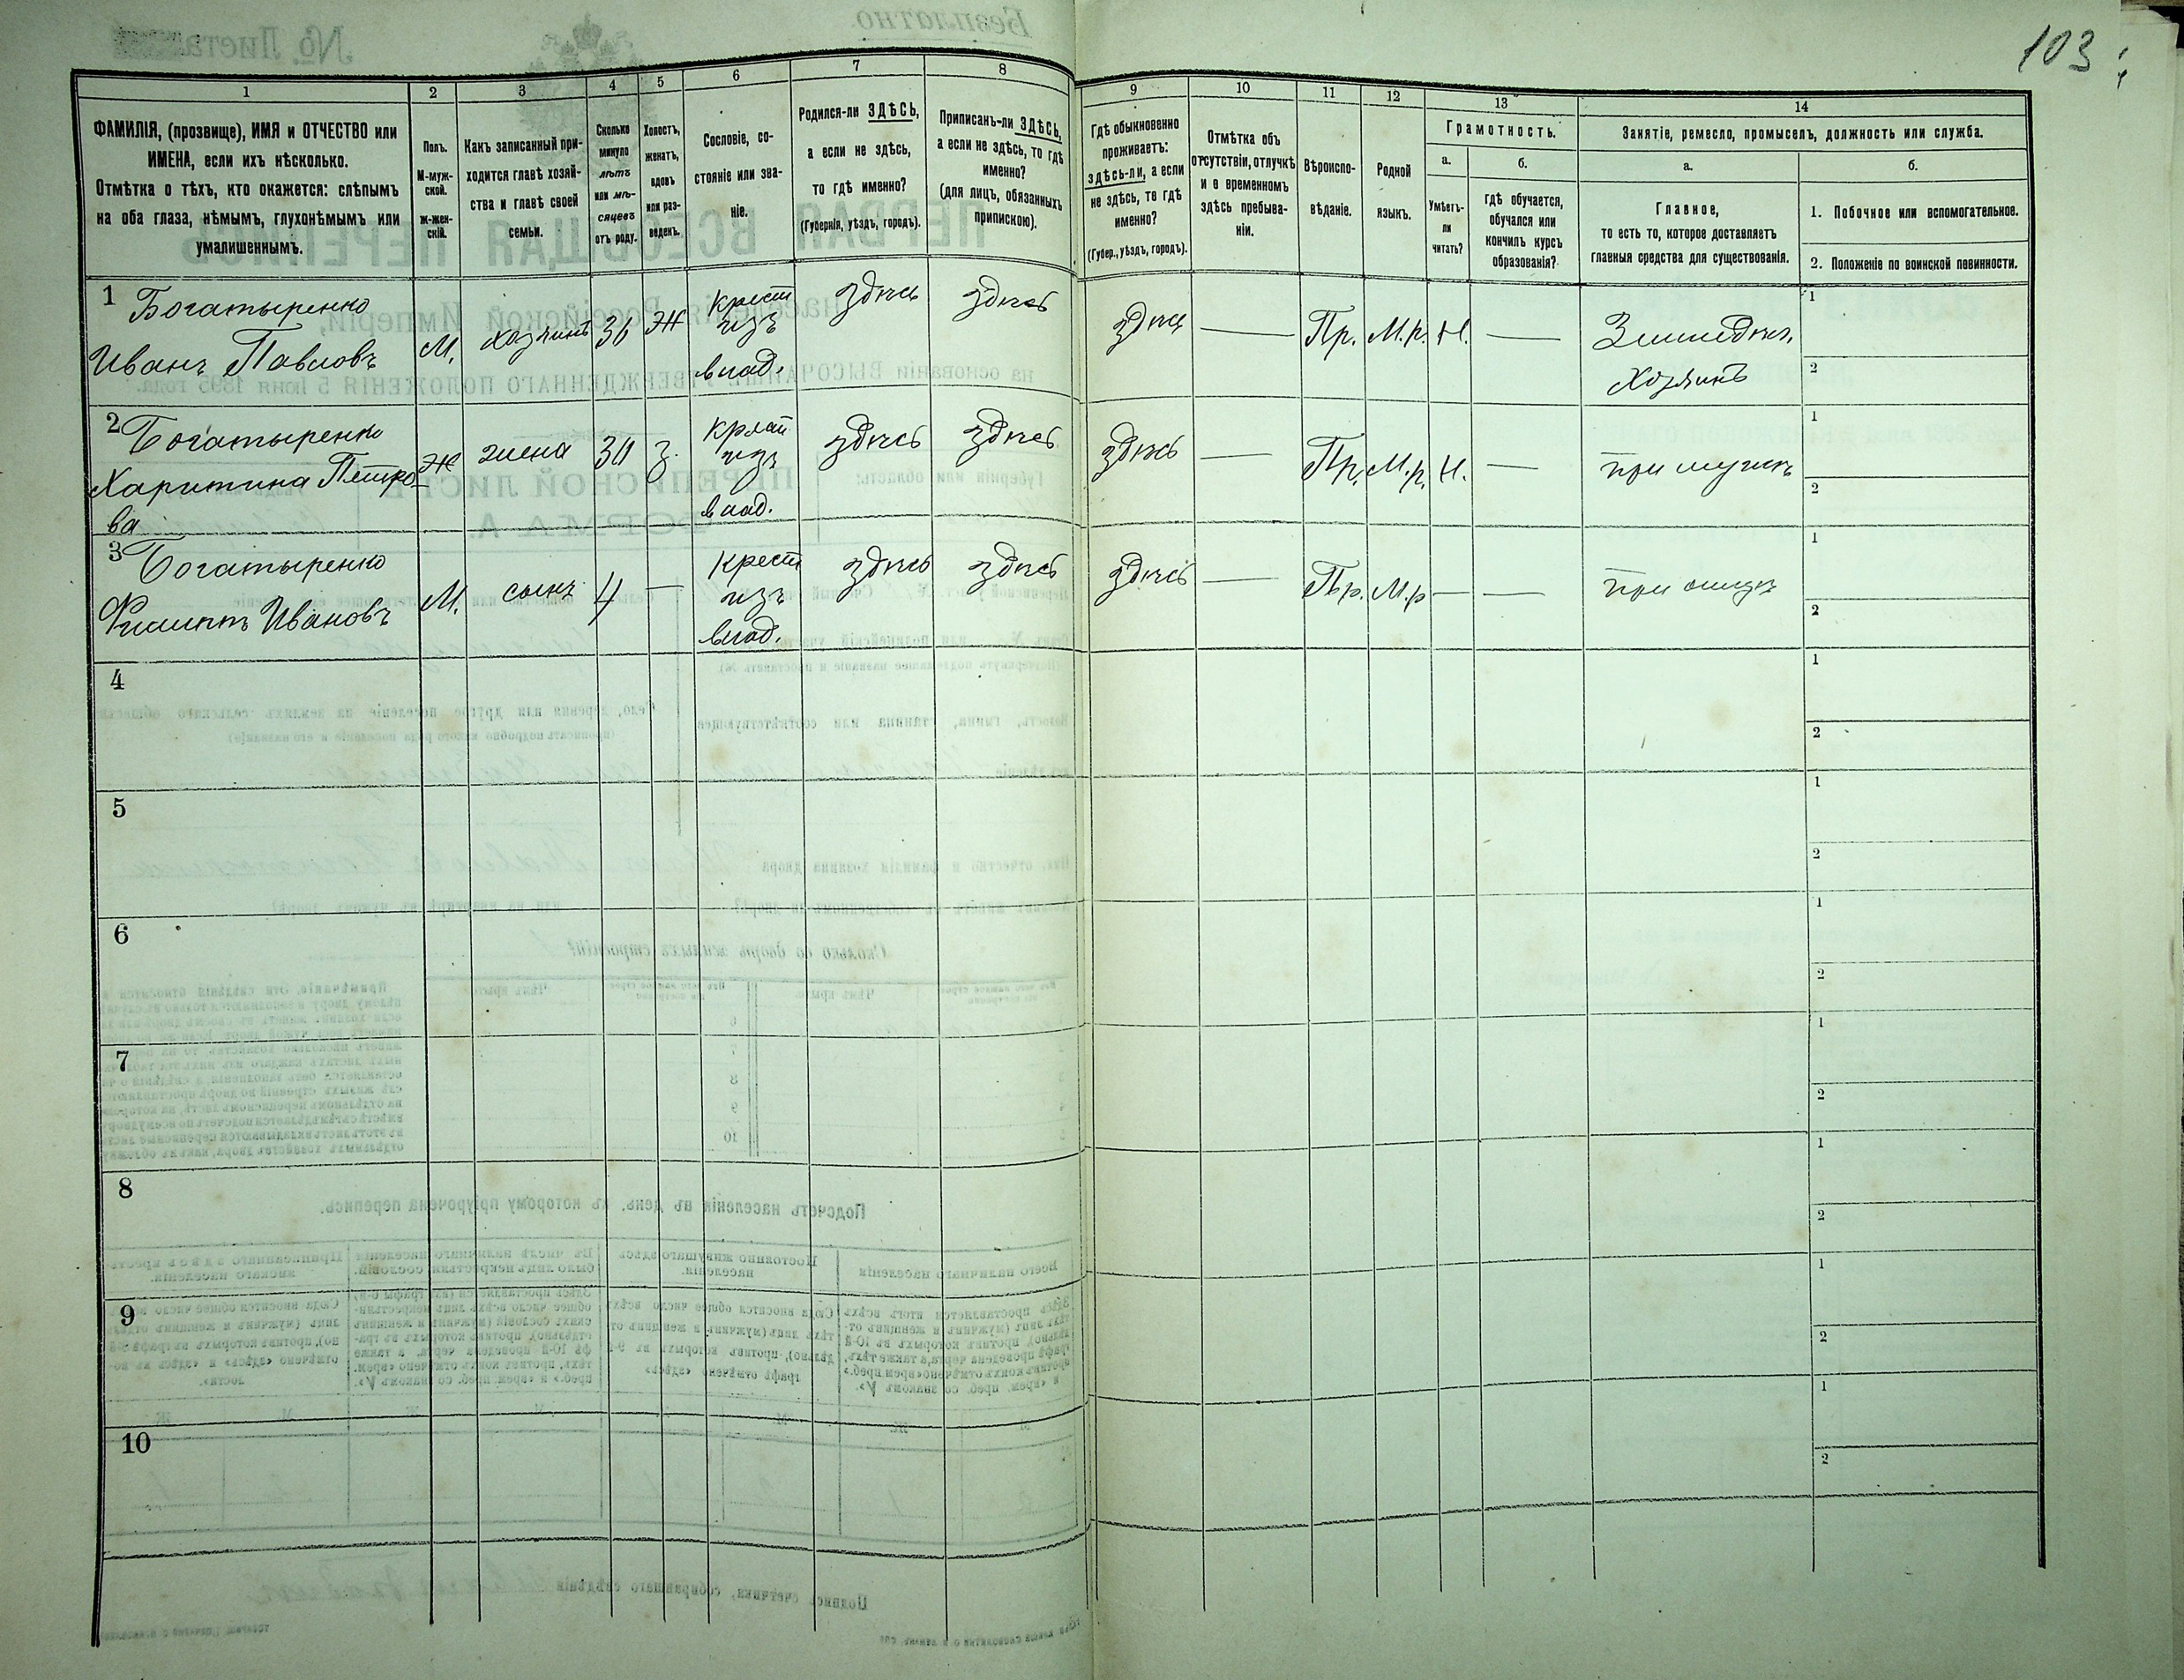 103
1 2 3 4 5 6 7 8 9 10 11 12 13 14
ФАМИЛІЯ, (прозвище), ИМЯ и ОТЧЕСТВО или
ИМЕНА, если ихъ нѣсколько.
Отмѣтка о тѣхъ, кто окажется: слѣпымъ
на оба глаза, нѣмымъ, глухонѣмымъ или
умалишеннымъ.
Полъ.
М-муж-
ской.
Ж-жен-
скій.
Какъ записанный при-
ходится главѣ хозяй-
ства и главѣ своей
семьи.
Сколько
минуло
лѣтъ
или мѣ-
сяцевъ
отъ роду.
Холостъ,
женатъ,
вдовъ
или раз-
веденъ.
Сословіе, со-
стояніе или зва-
ніе.
Родился-ли ЗДѢСЬ,
а если не здѣсь,
то гдѣ именно?
(Губернія, уѣздъ, городъ).
Приписанъ-ли ЗДѢСЬ,
а если не здѣсь, то гдѣ
именно?
(для лицъ, обязанныхъ
припискою).
Гдѣ обыкновенно
проживаетъ:
здѣсь-ли, а если
не здѣсь, то гдѣ
именно?
(Губер., уѣздъ, городъ).
Отмѣтка объ
отсутствіи, отлучкѣ
и о временномъ
здѣсь пребыва-
ніи.
Вѣроиспо-
вѣданіе.
Родной
языкъ.
Грамотность.
а.
Умѣетъ-
ли
читать?
б.
гдѣ обучается,
обучался или
кончилъ курсъ
образованія?
Занятіе, ремесло, промыселъ, должность или служба.
а.
Главное,
то есть то, которое доставляетъ
главныя средства для существованія.
б.
1. Побочное или вспомогательное.
2. Положеніе по воинской повинности.
1 Богатыренко
Иванъ Павловъ
М.
хозяинъ
Ж
Крест
изъ
влад.
здѣсь
здѣсь
здѣсь
—
Пр.
М.р.
Н.
—
Земледѣл.
Хозяинъ
1
2
2 Богатыренко
Харитина Петро-
ва
Ж
жена
30
З.
изъ
влад.
здѣсь
здѣсь
здѣсь
—
Пр.
М.р.
Н.
—
при мужѣ
1
2
3 Богатыренко
Филиппъ Ивановъ
М.
сынъ
4
—
Крест
изъ
влад.
здѣсь
здѣсь
здѣсь
—
Пр.
М.р
—
—
при отцѣ
1
2
4
1
2
5
1
2
6
1
2
7
1
2
8
1
2
9
1
2
10
1
2